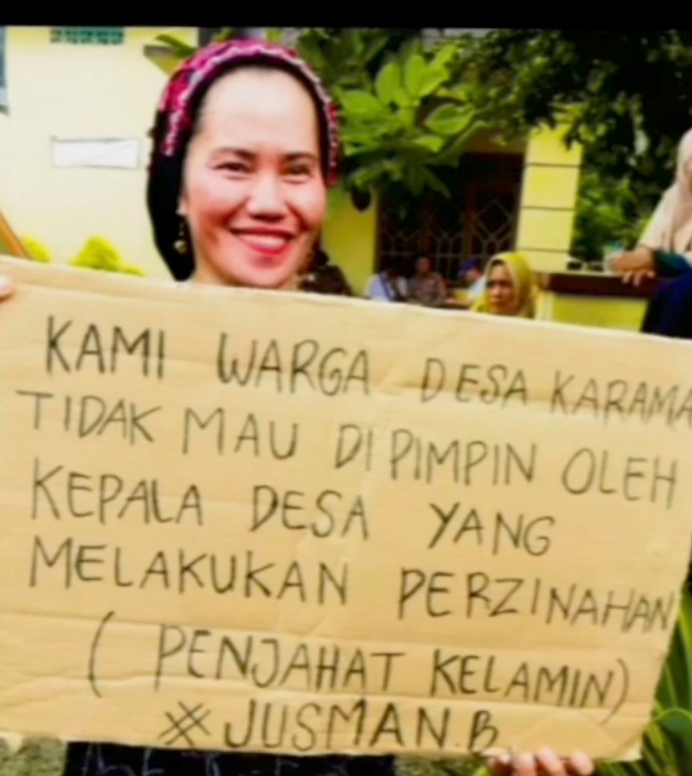 KAMI WARGA DESA KARAMA
TIDAK MAU DIPIMPIN OLEH
KEPALA DESA YANG
MELAKUKAN PERZINAHAN
( PENJAHAT KELAMIN)
#JUSMAN.B